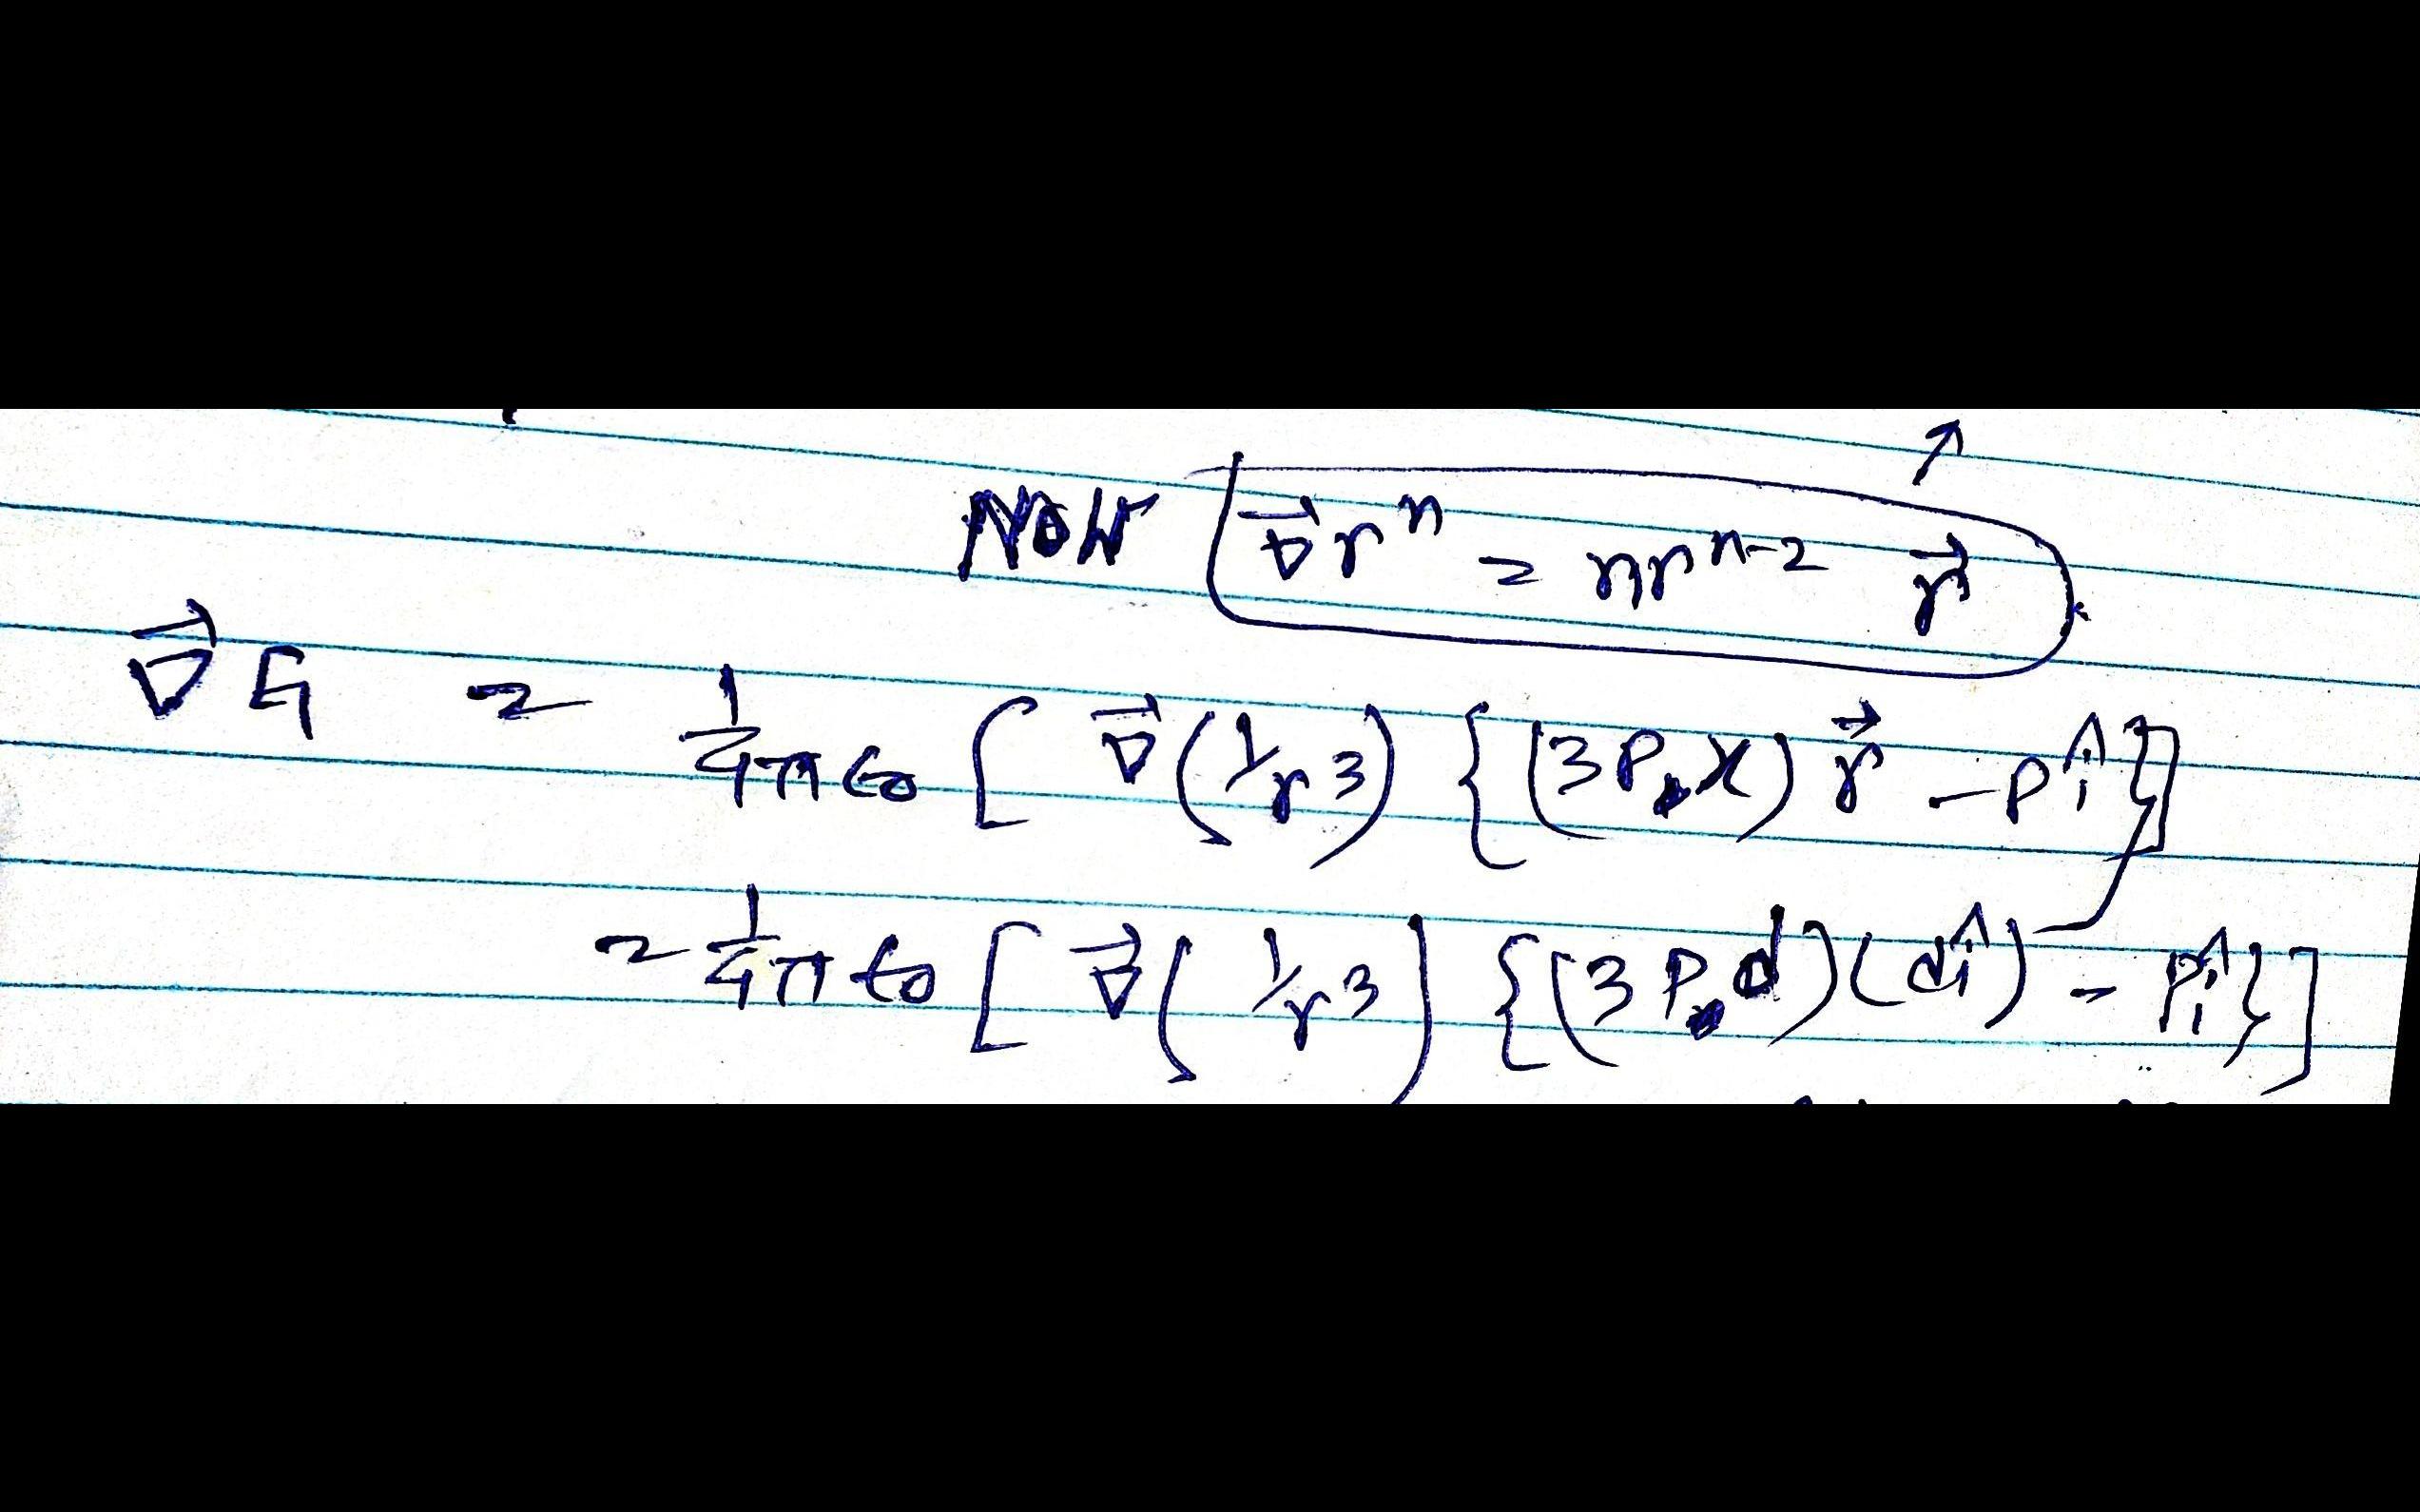 NOW ∇⃗rⁿ = nrⁿ⁻² r⃗
∇⃗ E₁ = 1/4πε₀ [ ∇⃗(1/r³) {(3P.x) r⃗ - pî}]
= 1/4πε₀ [ ∇⃗(1/r³) {(3P.d)(dî) - Pî}]